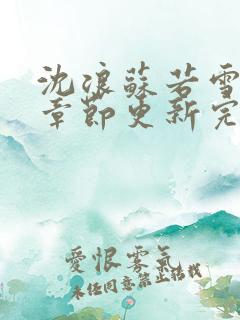 沈浪蘇若雪
章節更新完
愛恨霧氣
未经同意禁止转载